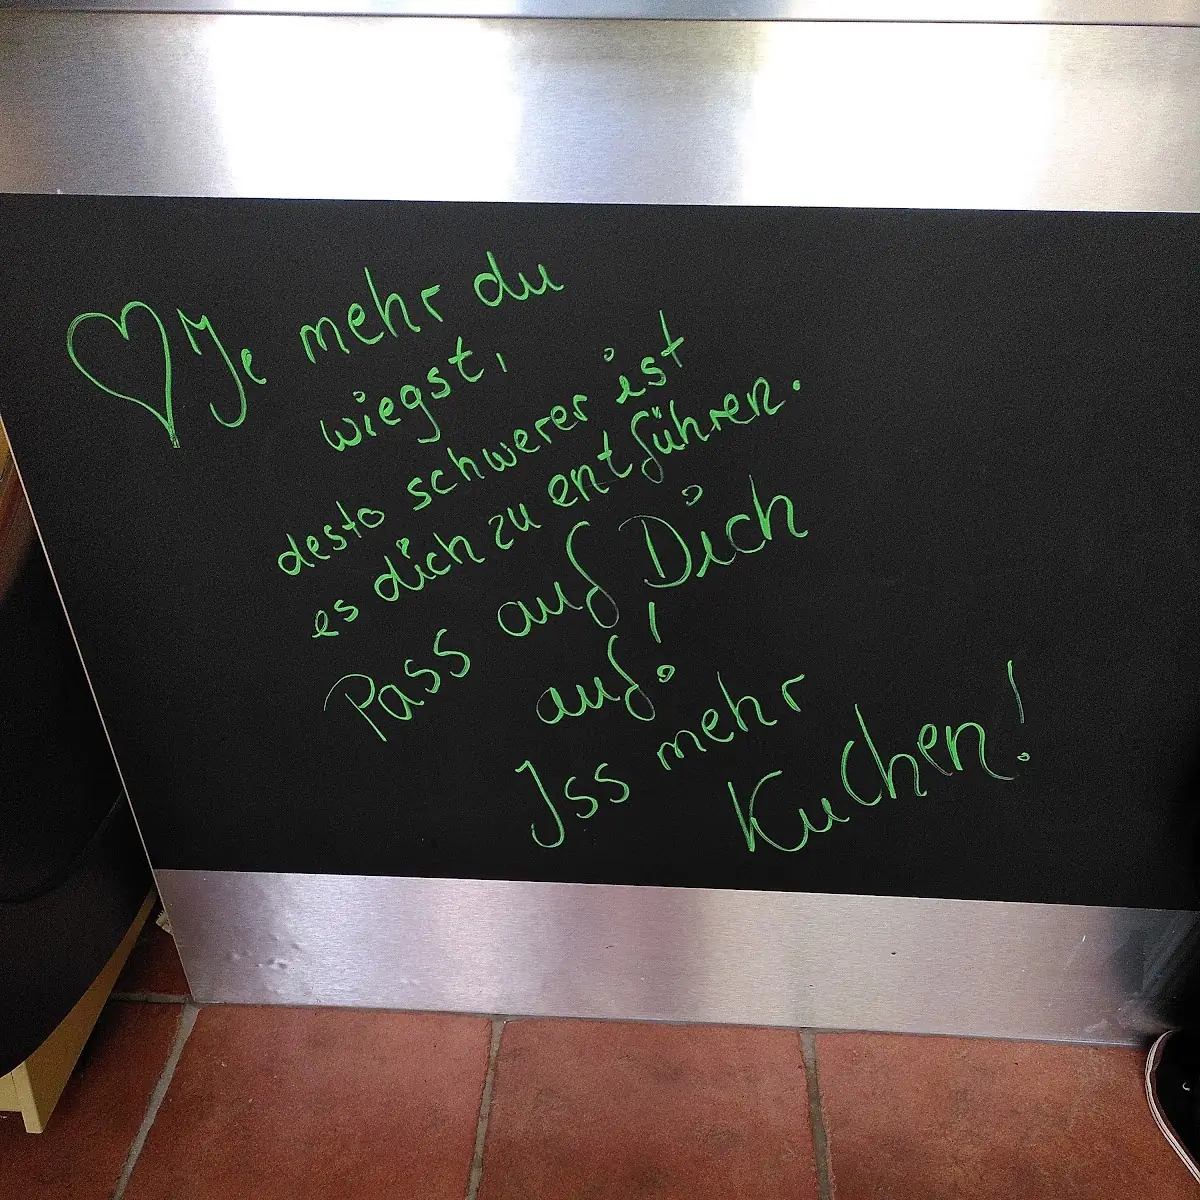 Je mehr du
wiegst,
desto schwerer ist
es dich zu entführen.
Pass auf Dich
auf!
Iss mehr
Kuchen!